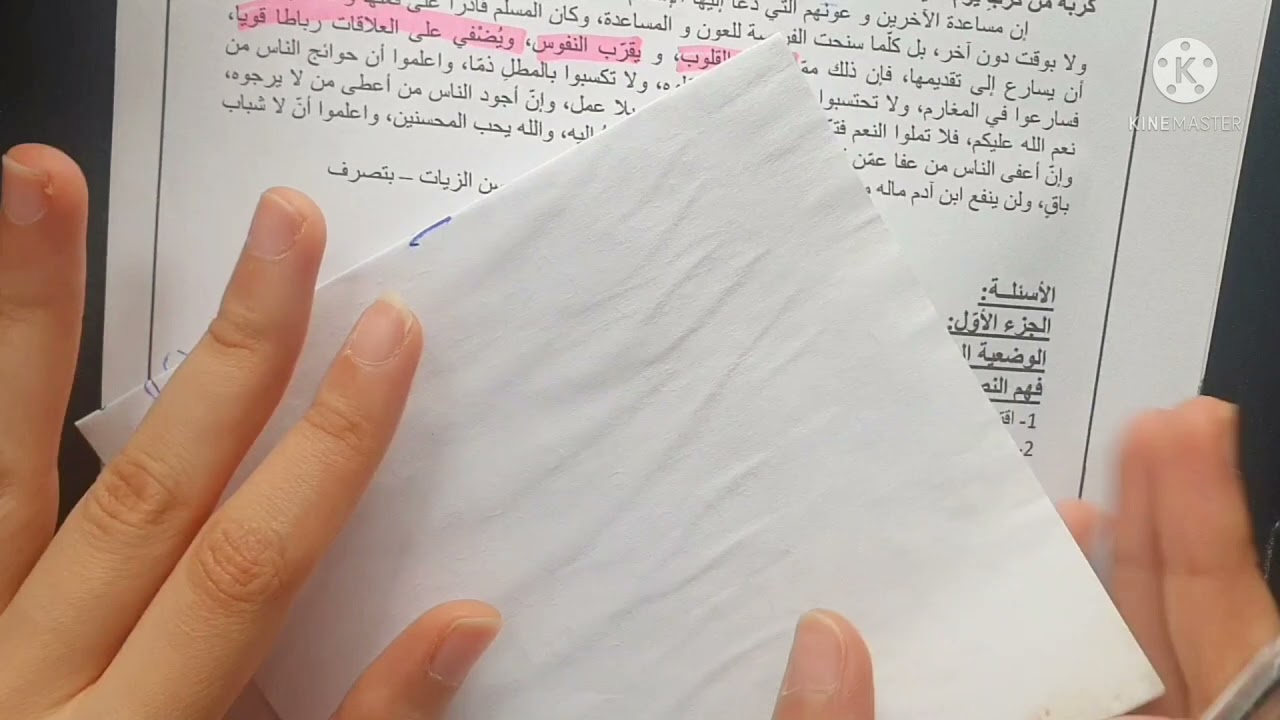 كربة من كرب
إن مساعدة الآخرين و عونهم التي دعا إليها
ولا بوقت دون آخر، بل كلّما سنحت الفرصة للعون و المساعدة، وكان المسلم قادرا على
أن يسارع إلى تقديمها، فإن ذلك القلوب، و يقرّب النفوس، ويُضْفي على العلاقات رباطا قويا،
فسارعوا في المغارم، ولا تحتسبوا ولا تكسبوا بالمطل ذمّا، واعلموا أن حوائج الناس من
نعم الله عليكم، فلا تملوا النعم بلا عمل، وإنّ أجود الناس من أعطى من لا يرجوه،
وإنّ أعفى الناس من عفا عمّن إليه، والله يحب المحسنين، واعلموا أنّ لا شباب
باقٍ، ولن ينفع ابن آدم ماله
الزيات – بتصرف
الأسئلــة:
الجزء الأوّل:
الوضعية
فهم
1-
2-
KINEMASTER